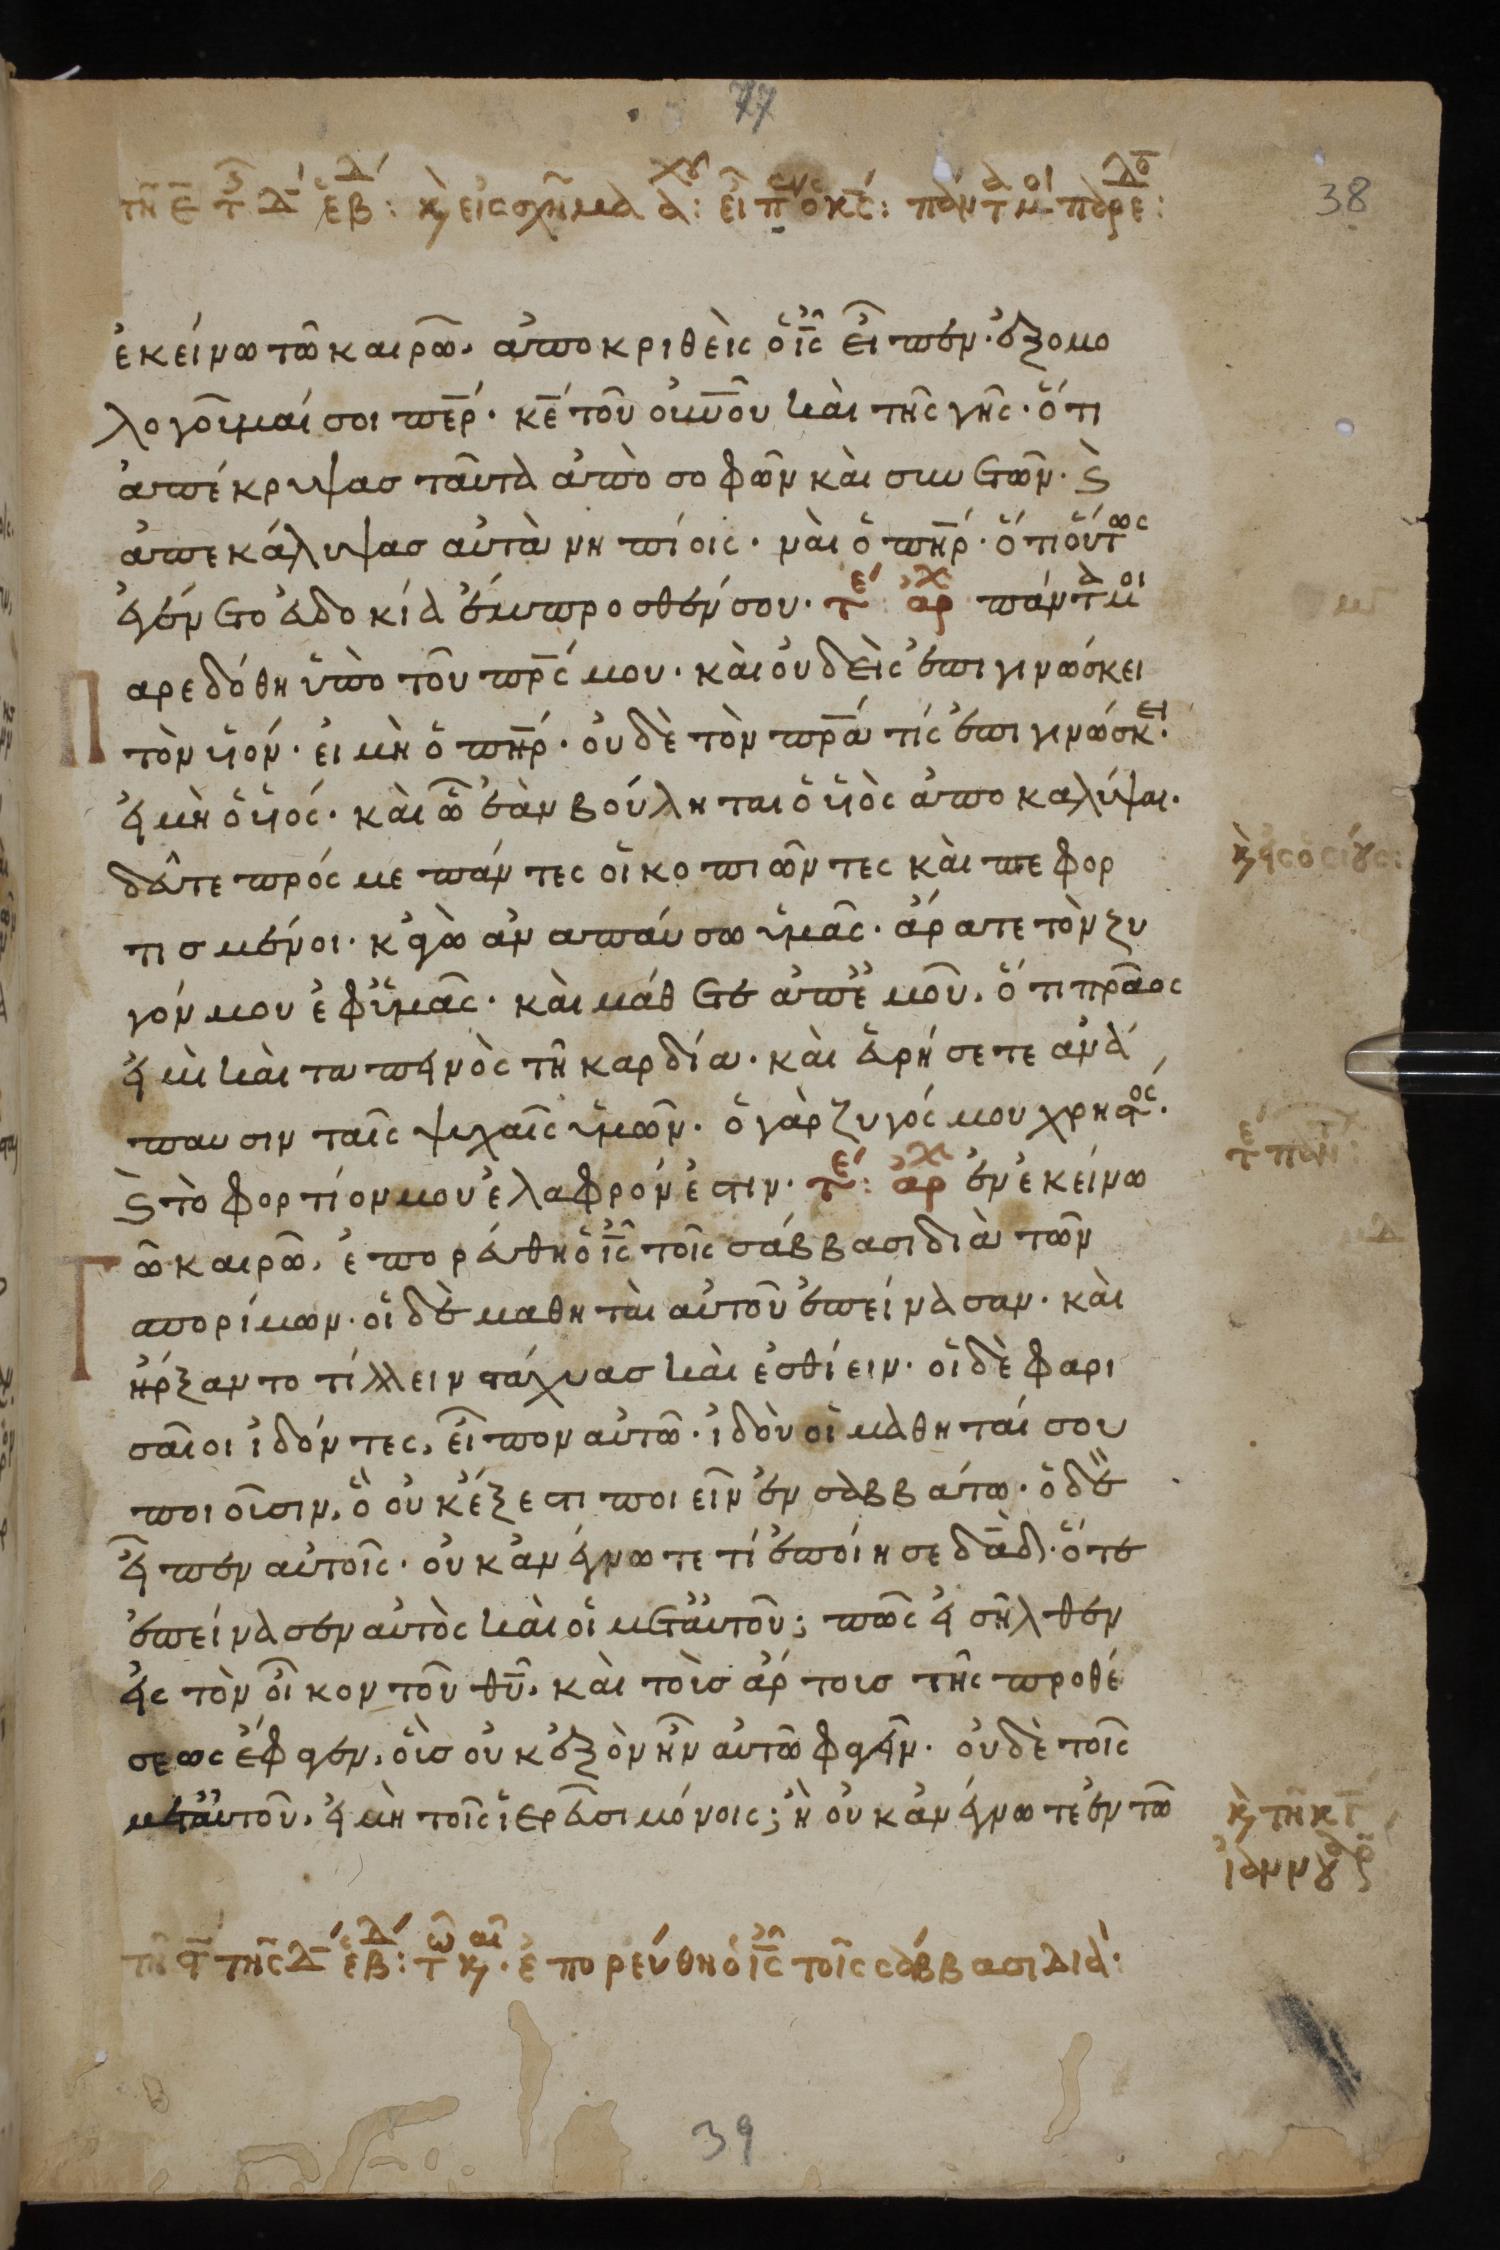 77
38
τῆ ε τ Δ ἑβ: κ εἰς σχῆμα α: εἶπ ο κς: πάντ μ παρε:
ἐκείνω τῶ καιρῶ, ἀποκριθεὶς ὁ ἰς εἶπεν· ἐξομο
λογοῦμαί σοι περ· κε τοῦ οὐνοῦ καὶ τῆς γῆς· ὅτι
ἀπέκρυψασ ταῦτα ἀπὸ σοφῶν καὶ συνετῶν· καὶ
ἀπεκάλυψασ αὐτὰ νηπίοις· ναὶ ὁ πηρ· ὅτι οὕτως
ἐγένετο εὐδοκία ἔμπροσθέν σου· τε: ἀρχ πάντα μοι
αρεδόθη ὑπὸ τοῦ πρς μου· καὶ οὐδεὶς ἐπιγινώσκει
τὸν υἱόν· εἰ μὴ ὁ πηρ· οὐδὲ τὸν πρα τίς ἐπιγινώσκει·
εἰ μὴ ὁ υἱός· καὶ ὧ ἐὰν βούληται ὁ υἱὸς ἀποκαλύψαι·
δεῦτε πρός με πάντες οἱ κοπιῶντες καὶ πεφορ
τισμένοι· κἀγὼ ἀναπαύσω ὑμᾶς· ἄρατε τὸν ζυ
γόν μου ἐφ' ὑμᾶς· καὶ μάθετε ἀπ' ἐμοῦ, ὅτι πρᾶος
εἰμὶ καὶ ταπεινὸς τῆ καρδία· καὶ εὑρήσετε ἀνά
παυσιν ταῖς ψυχαῖς ὑμῶν· ὁ γὰρ ζυγός μου χρηστός·
καὶ τὸ φορτίον μου ἐλαφρόν ἐστιν· τε: ἀρχ ἐν ἐκείνω
Τῶ καιρῶ, ἐπορεύθη ὁ ἰς τοῖς σάββασι διὰ τῶν
σπορίμων· οἱ δὲ μαθηταὶ αὐτοῦ ἐπείνασαν· καὶ
ἤρξαντο τίλλειν στάχυασ καὶ ἐσθίειν· οἱ δὲ φαρι
σαῖοι ἰδόντες, εἶπον αὐτῶ· ἰδοὺ οἱ μαθηταί σου
ποιοῦσιν, ὃ οὐκ ἔξεστι ποιεῖν ἐν σαββάτω· ὁ δὲ
εἶπεν αὐτοῖς· οὐκ ἀνέγνωτε τί ἐποίησε δαδ· ὅτε
ἐπείνασεν αὐτὸς καὶ οἱ μετ' αὐτοῦ; πῶς εἰσῆλθεν
εἰς τὸν οἶκον τοῦ θυ, καὶ τοὺσ ἄρτουσ τῆς προθέ
σεως ἔφαγεν, οὓσ οὐκ ἐξὸν ἦν αὐτῶ φαγεῖν· οὐδὲ τοῖς
μετ' αὐτοῦ, εἰ μὴ τοῖς ἱερεῦσι μόνοις; ἢ οὐκ ἀνέγνωτε ἐν τῶ
Π
κ εἰς ὁσίους:
τε
κ τῆ κ
τῆ τῆς Δ ἑβ: τῶ κ· ἐπορεύθη ὁ ἰς τοῖς σάββασι διὰ·
39